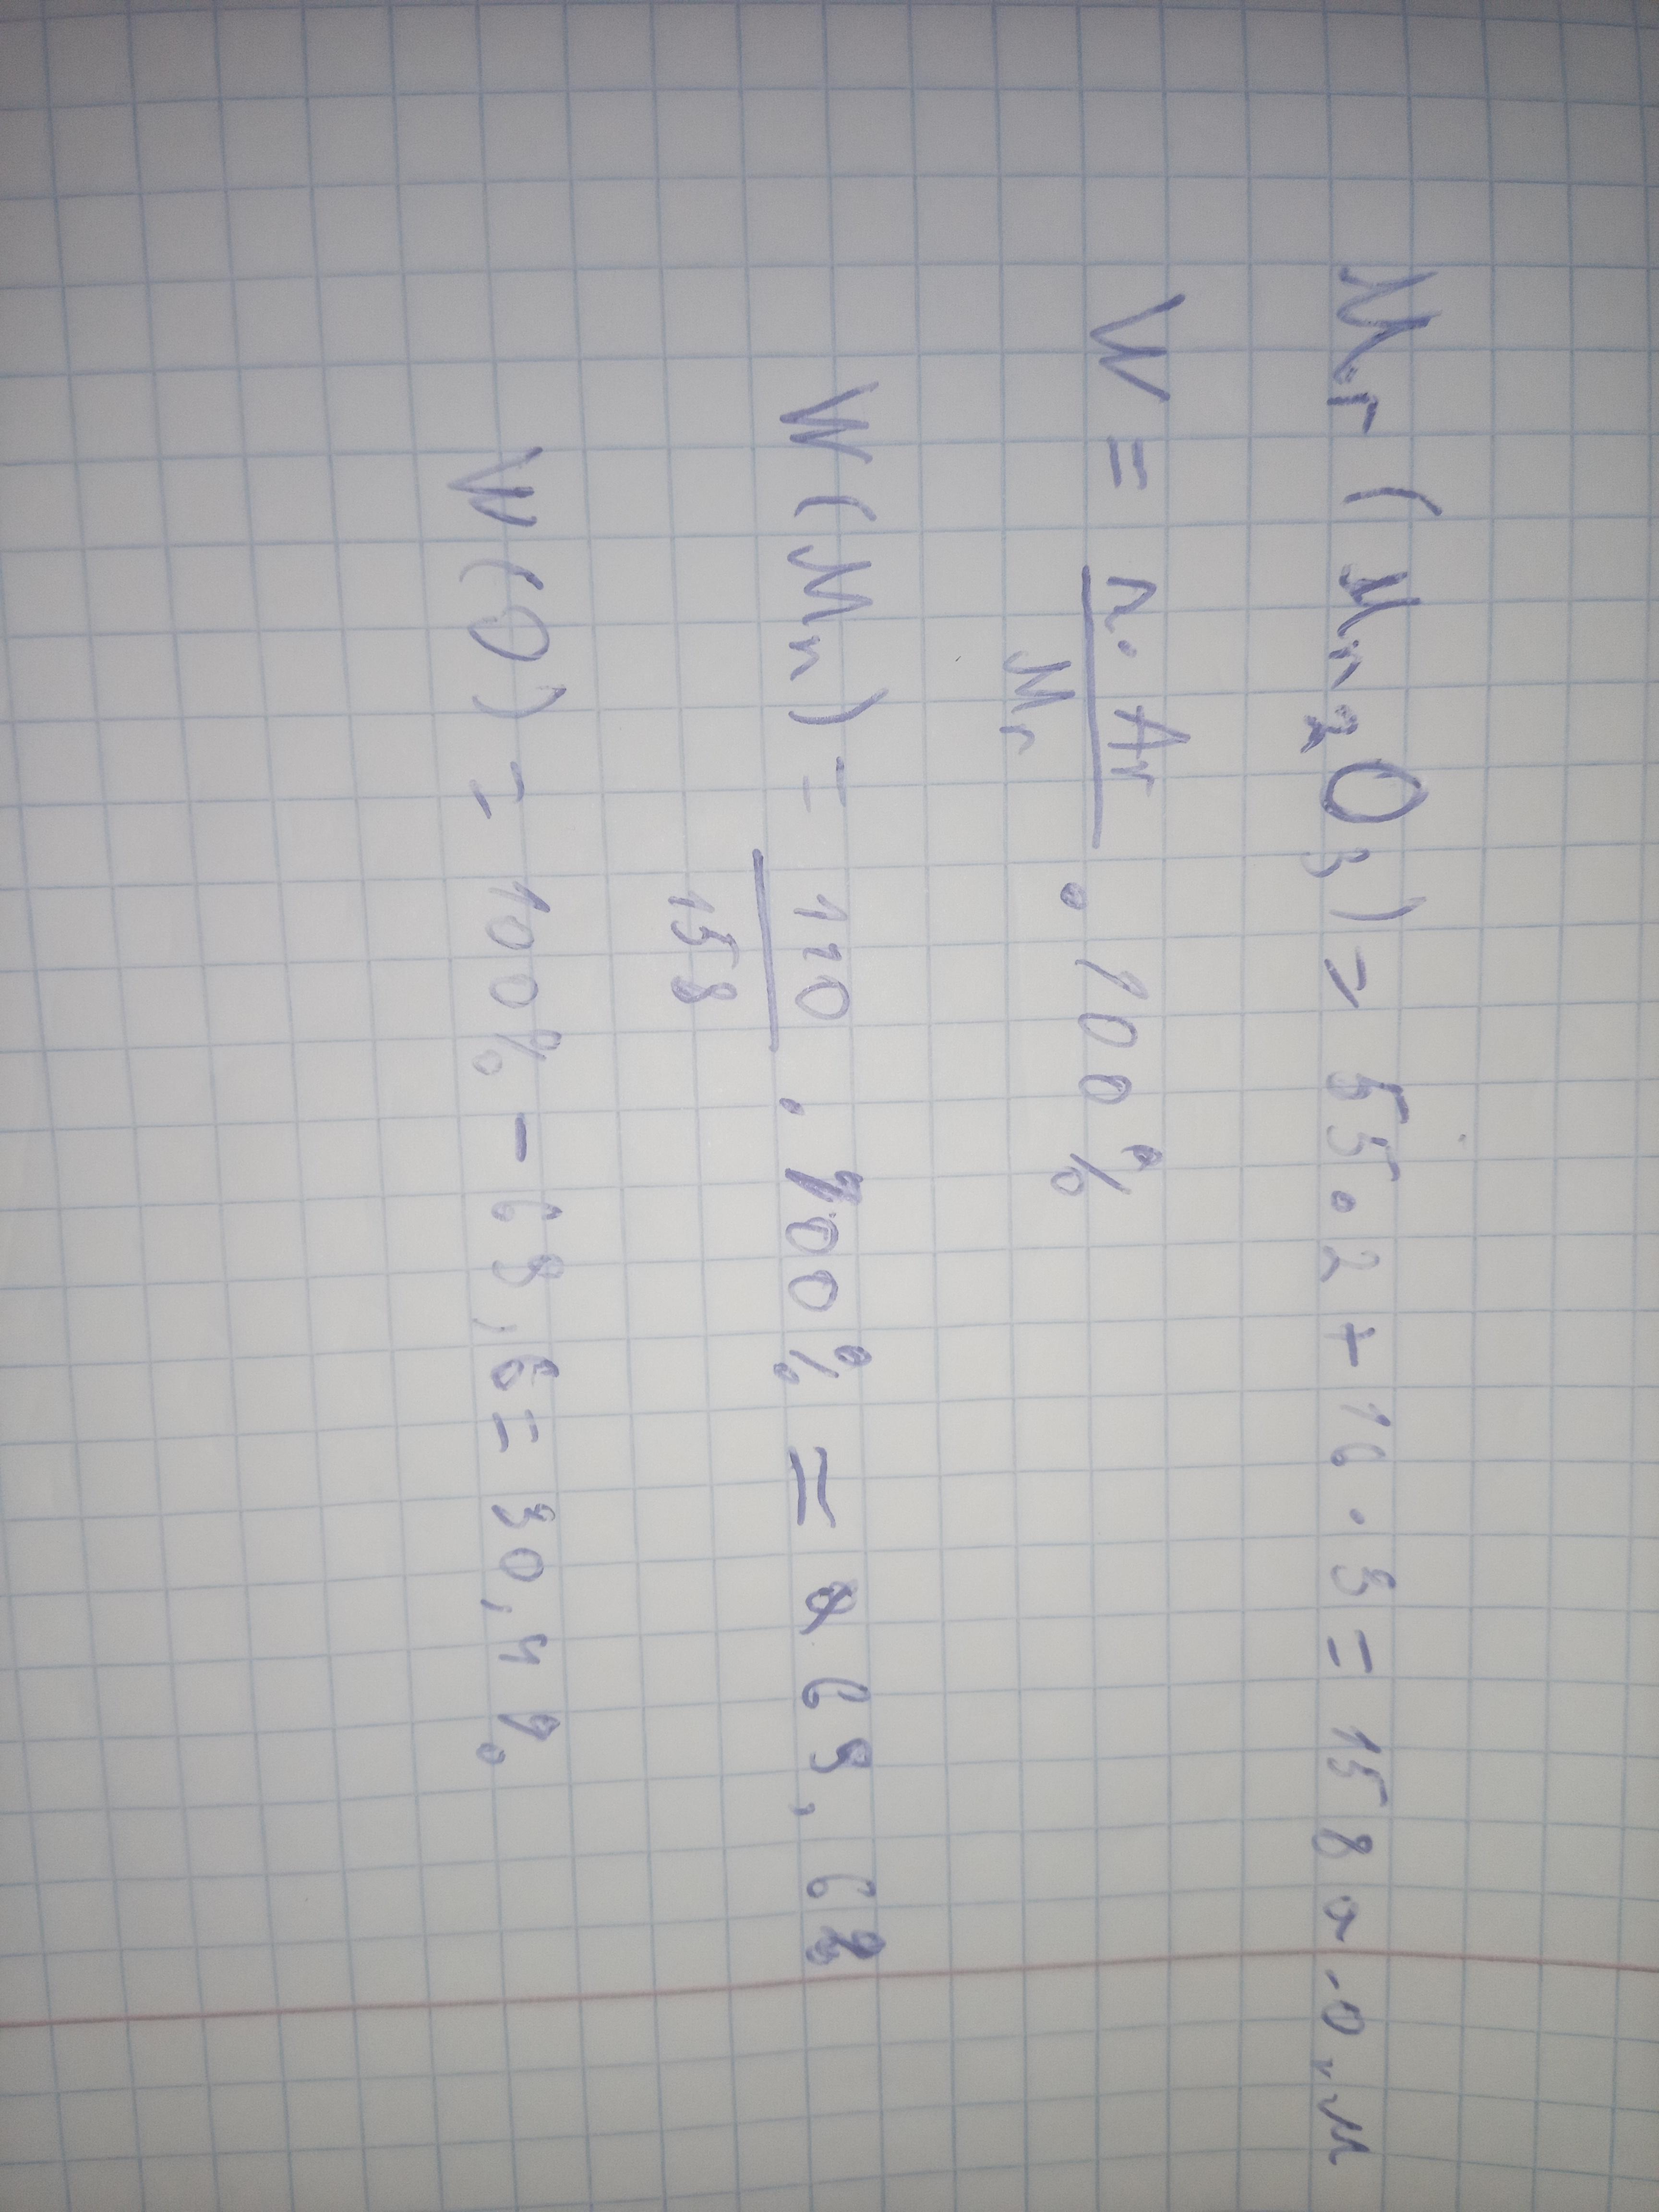 Mr (Mn2O3) = 55·2 + 16·3 = 158 а.о.м
W = n·Ar/Mr · 100%
W(Mn) = 110/158 · 100% = 69,62
W(O) = 100% - 69,6 = 30,4%